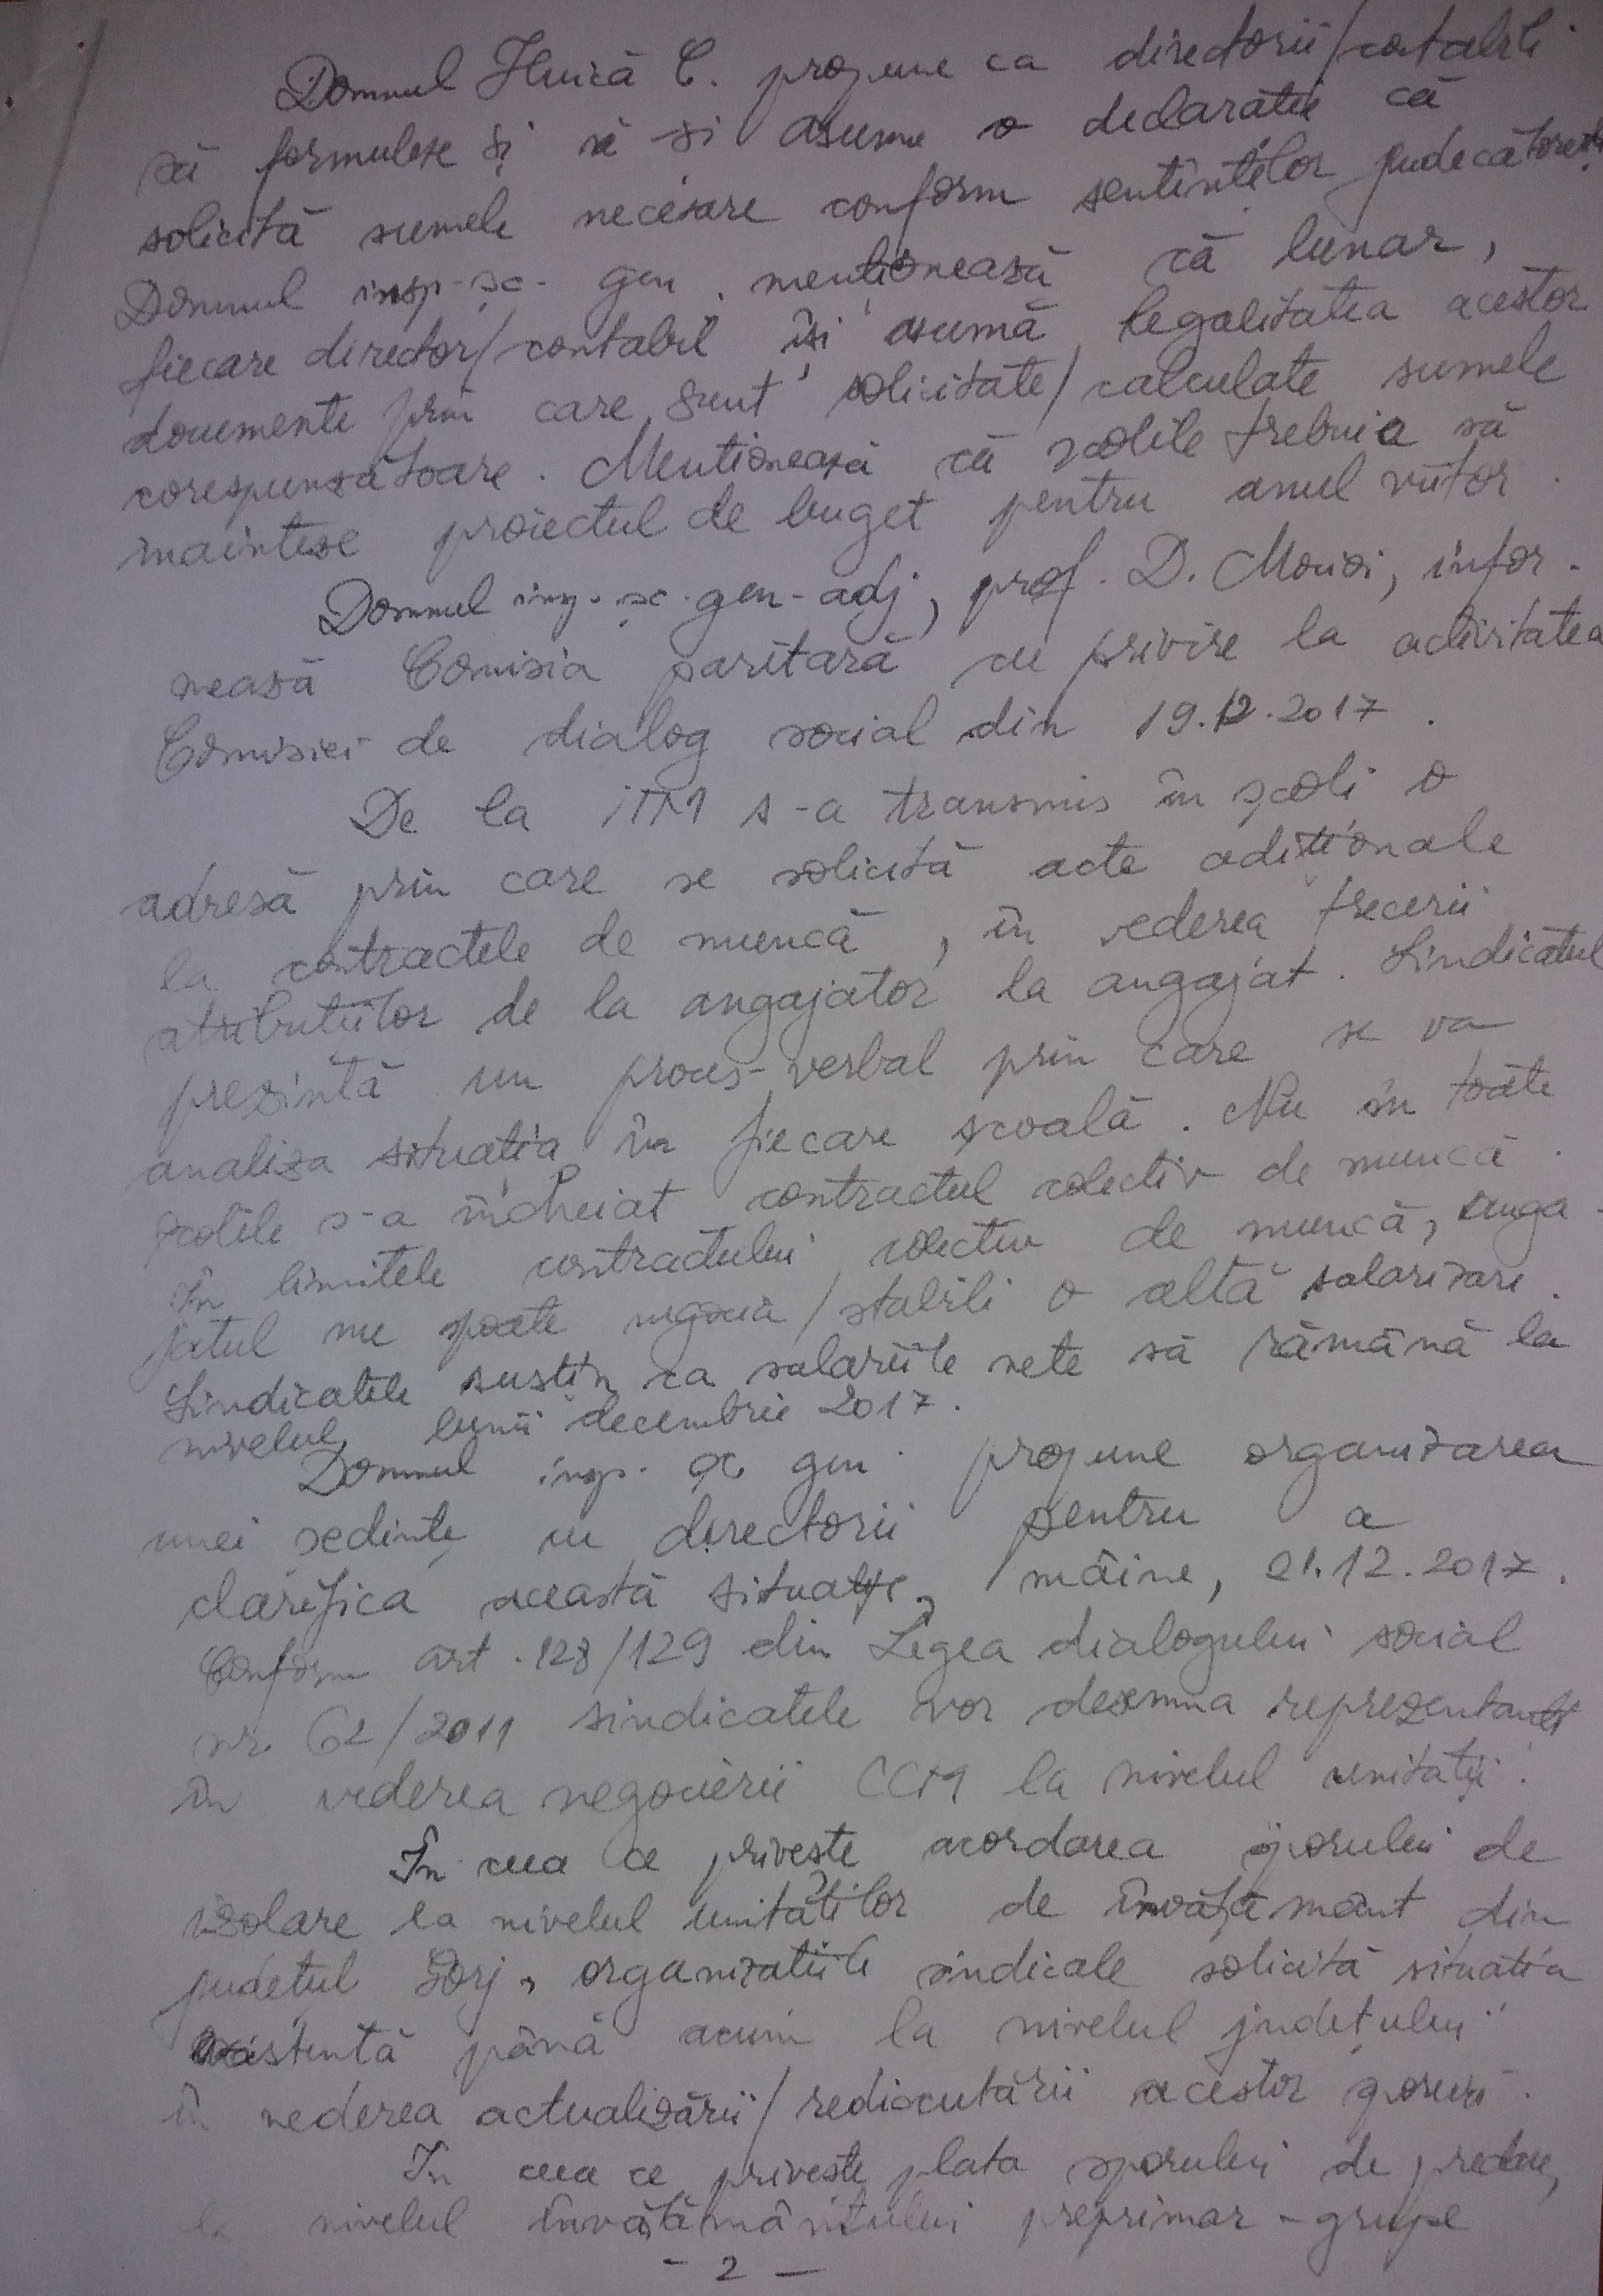 Domnul Huică C. propune ca directorii/contabili
să formuleze și să-și asume o declarație că
solicită sumele necesare conform sentințelor judecătorești.
Domnul insp. șc. gen. menționează că lunar,
fiecare director/contabil își asumă legalitatea acestor
documente prin care sunt solicitate/calculate sumele
corespunzătoare. Menționează că școlile trebuie să
înainteze proiectul de buget pentru anul viitor.
Domnul insp. șc. gen-adj, prof. D. infor-
mează Comisia paritară cu privire la activitatea
Comisiei de dialog social din 19.12.2017.
De la ITM s-a transmis în școli o
adresă prin care se solicită acte adiționale
la contractele de muncă, în vederea trecerii
atribuțiilor de la angajator la angajat. Sindicatul
prezintă un proces-verbal prin care se va
analiza situația în fiecare școală. Nu în toate
școlile s-a încheiat contractul colectiv de muncă.
În limitele contractului colectiv de muncă, anga-
jatul nu poate negocia/stabili o altă salarizare.
Sindicatele susțin ca salariile nete să rămână la
nivelul lunii decembrie 2017.
Domnul insp. șc. gen. propune organizarea
unei ședințe cu directorii pentru a
clarifica această situație, mâine, 21.12.2017.
Conform art. 128/129 din Legea dialogului social
nr. 62/2011 sindicatele vor desemna reprezentanți
în vederea negocierii CCM la nivelul unității.
În ceea ce privește acordarea sporului de
izolare la nivelul unităților de învățământ din
județul Gorj, organizațiile sindicale solicită situația
existentă până acum la nivelul județului
în vederea actualizării/rediscutării acestor sporuri.
În ceea ce privește plata sporului de predare,
la nivelul învățământului preprimar - grupe
- 2 -